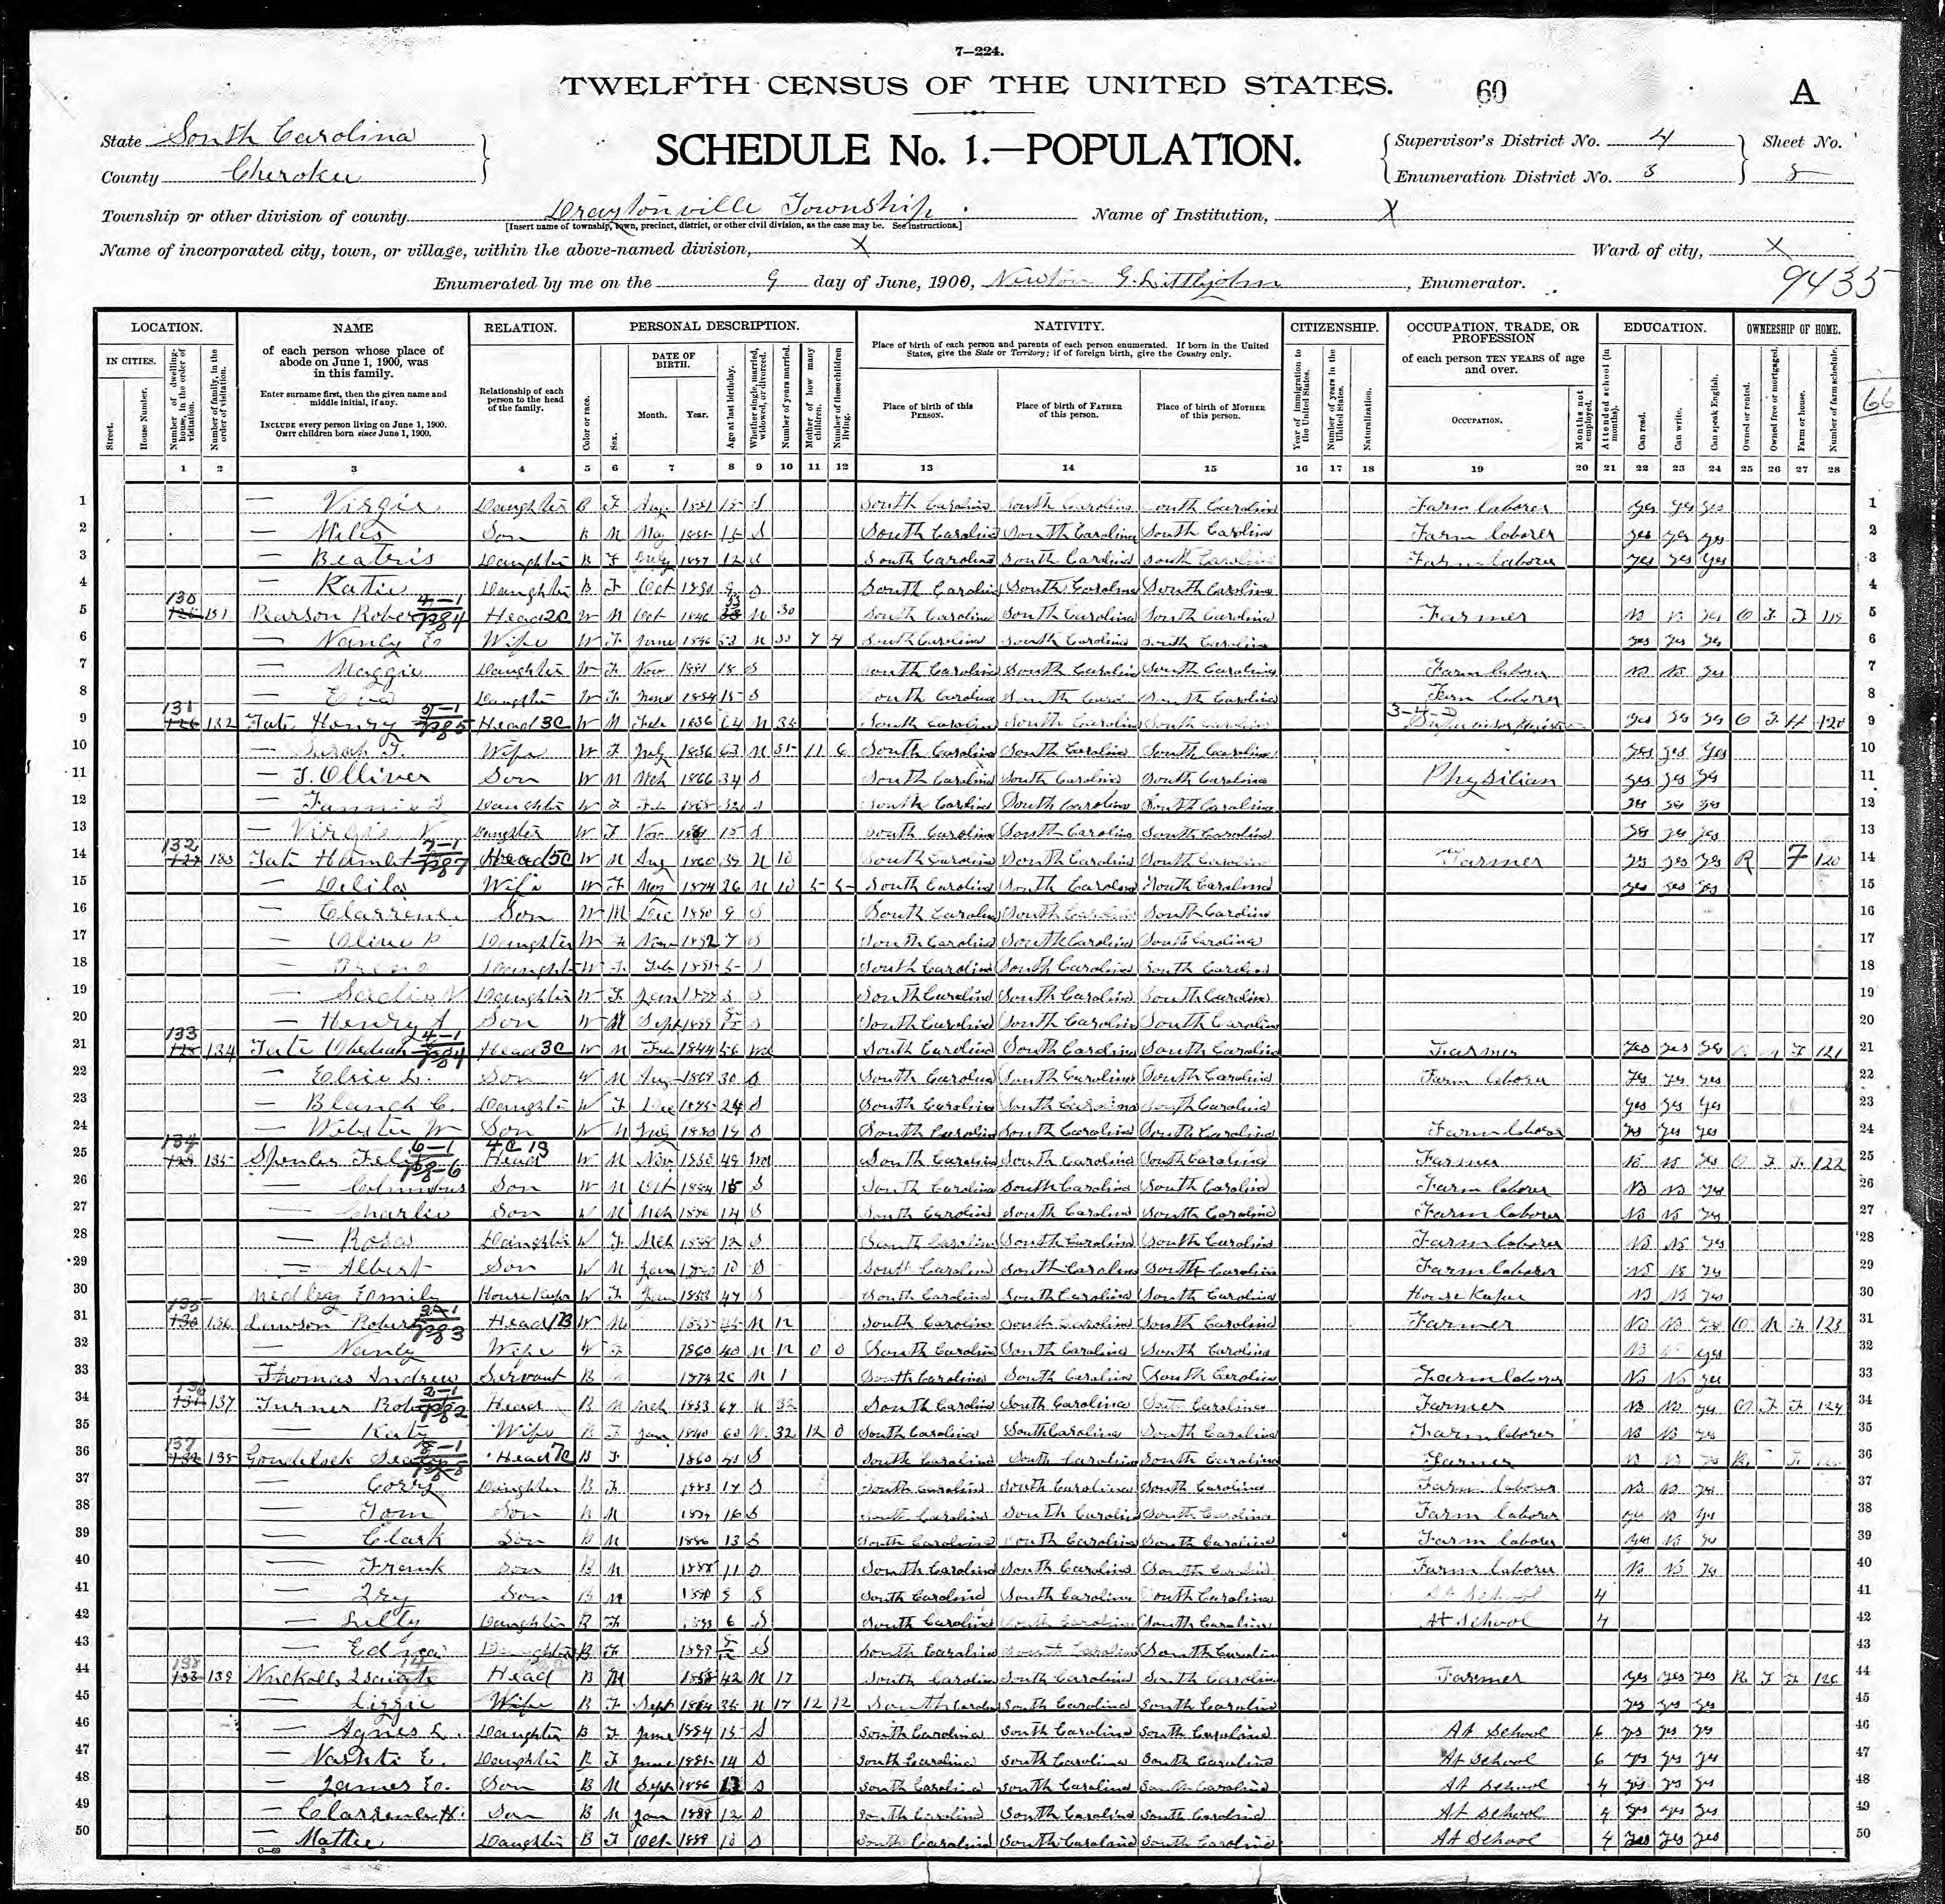 7—224.
TWELFTH CENSUS OF THE UNITED STATES.
60
A
State South Carolina
County Cherokee
SCHEDULE No. 1.—POPULATION.
Supervisor's District No. 4
Enumeration District No. 3
Sheet No.
8
Township or other division of county Draytonville Township.
[Insert name of township, town, precinct, district, or other civil division, as the case may be. See instructions.]
Name of Institution, X
Name of incorporated city, town, or village, within the above-named division, X
Ward of city, X
Enumerated by me on the 9 day of June, 1900, Newton G. Littlejohn, Enumerator.
9435
66
LOCATION.
IN CITIES.
Street.
House Number.
Number of dwelling-house, in the order of visitation.
Number of family, in the order of visitation.
NAME
of each person whose place of abode on June 1, 1900, was in this family.
Enter surname first, then the given name and middle initial, if any.
INCLUDE every person living on June 1, 1900.
OMIT children born since June 1, 1900.
RELATION.
Relationship of each person to the head of the family.
PERSONAL DESCRIPTION.
Color or race.
Sex.
DATE OF BIRTH.
Month.
Year.
Age at last birthday.
Whether single, married, widowed, or divorced.
Number of years married.
Mother of how many children.
Number of these children living.
NATIVITY.
Place of birth of each person and parents of each person enumerated. If born in the United States, give the State or Territory; if of foreign birth, give the Country only.
Place of birth of this PERSON.
Place of birth of FATHER of this person.
Place of birth of MOTHER of this person.
CITIZENSHIP.
Year of immigration to the United States.
Number of years in the United States.
Naturalization.
OCCUPATION, TRADE, OR PROFESSION
of each person TEN YEARS of age and over.
OCCUPATION.
Months not employed.
EDUCATION.
Attended school (in months).
Can read.
Can write.
Can speak English.
OWNERSHIP OF HOME.
Owned or rented.
Owned free or mortgaged.
Farm or house.
Number of farm schedule.
1 2 3 4 5 6 7 8 9 10 11 12 13 14 15 16 17 18 19 20 21 22 23 24 25 26 27 28
1 — Virgie Daughter B F Aug S South Carolina South Carolina South Carolina Farm laborer yes yes yes 1
2 — Son B M May 15 S South Carolina South Carolina South Carolina Farm laborer yes yes yes 2
3 — Beatris Daughter B F July 12 S South Carolina South Carolina South Carolina Farm laborer yes yes yes 3
4 — Katie Daughter B F Oct 1890 9 S South Carolina South Carolina South Carolina 4
5 130 131 Pearson Robert Head W M Oct 1846 53 M 30 South Carolina South Carolina South Carolina Farmer yes O F F 119 5
6 — Wife W F June 1846 53 M 30 7 4 South Carolina South Carolina South Carolina yes yes yes 6
7 — Maggie Daughter W F Nov 1881 18 S South Carolina South Carolina South Carolina Farm labor yes 7
8 — Daughter W F 1884 15 S South Carolina South Carolina South Carolina Farm laborer 8
9 131 132 Tate Henry Head W M Feb 1836 64 M 35 South Carolina South Carolina South Carolina yes yes yes O F H 120 9
10 — Sarah Wife W F July 1836 63 M 35 11 6 South Carolina South Carolina South Carolina yes yes yes 10
11 — J. Olliver Son W M Mch 1866 34 S South Carolina South Carolina South Carolina Physician yes yes yes 11
12 — Daughter W F Feb 1868 32 S South Carolina South Carolina South Carolina yes yes yes 12
13 — Daughter W F Nov 15 S South Carolina South Carolina South Carolina yes yes yes 13
14 132 133 Tate Hamlet Head W M Aug 1860 39 M 10 South Carolina South Carolina South Carolina Farmer yes yes yes R F 120 14
15 — Delila Wife W F May 1874 26 M 10 5 5 South Carolina South Carolina South Carolina yes yes yes 15
16 — Clarrence Son W M Dec 1890 9 S South Carolina South Carolina South Carolina 16
17 — Daughter W F Nov 1892 7 S South Carolina South Carolina South Carolina 17
18 — Daughter W F Feb 1895 5 S South Carolina South Carolina South Carolina 18
19 — Daughter W F Jan 3 S South Carolina South Carolina South Carolina 19
20 — Henry Son W M Sept 1899 S South Carolina South Carolina South Carolina 20
21 133 134 Tate Obediah Head W M Feb 1844 56 Wd South Carolina South Carolina South Carolina Farmer yes yes yes F 121 21
22 — Son W M Aug 1869 30 S South Carolina South Carolina South Carolina Farm labor yes yes yes 22
23 — Blanch C. Daughter W F Dec 1875 24 S South Carolina South Carolina South Carolina yes yes yes 23
24 — Webster W Son W M July 1880 19 S South Carolina South Carolina South Carolina Farm labor yes yes yes 24
25 134 135 Felix Head W M Nov 1850 49 Wd South Carolina South Carolina South Carolina Farmer No No yes O F F 122 25
26 — Columbus Son W M Oct 1884 15 S South Carolina South Carolina South Carolina Farm laborer No No yes 26
27 — Charlie Son W M Mch 1886 14 S South Carolina South Carolina South Carolina Farm laborer No No yes 27
28 — Rosa Daughter W F Mch 1888 12 S South Carolina South Carolina South Carolina Farm laborer No No yes 28
29 — Albert Son W M Jan 10 S South Carolina South Carolina South Carolina Farm laborer No No yes 29
30 Medley Emily House Keeper W F Jan 1853 47 S South Carolina South Carolina South Carolina House Keeper No No yes 30
31 135 136 Lawson Robert Head W M M 12 South Carolina South Carolina South Carolina Farmer No No yes O M F 123 31
32 — Wife W F 1860 40 M 12 0 0 South Carolina South Carolina South Carolina No yes 32
33 Thomas Andrew Servant B 1874 M 1 South Carolina South Carolina South Carolina Farm laborer No No yes 33
34 136 137 Turner Head B M Mch M 32 South Carolina South Carolina South Carolina Farmer No No yes O F F 124 34
35 — Katy Wife B F Jan 1840 60 M 32 12 0 South Carolina South Carolina South Carolina Farm laborer No No yes 35
36 137 138 Head B F 1860 S South Carolina South Carolina South Carolina Farmer F 36
37 — Daughter B F 1883 17 S South Carolina South Carolina South Carolina Farm laborer No No yes 37
38 — Tom Son B M 16 S South Carolina South Carolina South Carolina Farm laborer yes No yes 38
39 — Clark Son B M 1886 13 S South Carolina South Carolina South Carolina Farm laborer yes No yes 39
40 — Frank Son B M 1888 11 S South Carolina South Carolina South Carolina Farm laborer No No yes 40
41 — Son B M S South Carolina South Carolina South Carolina At School 4 41
42 — Lilly Daughter B F 6 S South Carolina South Carolina South Carolina At School 4 42
43 — Daughter B F 1899 S South Carolina South Carolina South Carolina 43
44 138 139 Head B M 42 M 17 South Carolina South Carolina South Carolina Farmer yes yes yes R F F 126 44
45 — Lizzie Wife B F Sept 1864 35 M 17 12 12 South Carolina South Carolina South Carolina yes yes yes 45
46 — Agnes L. Daughter B F June 1884 15 S South Carolina South Carolina South Carolina At School 6 yes yes yes 46
47 — Vashti E. Daughter B F June 1885 14 S South Carolina South Carolina South Carolina At School 6 yes yes yes 47
48 — James E. Son B M Sept 1886 13 S South Carolina South Carolina South Carolina At School 4 yes yes yes 48
49 — Clarrence H. Son B M Jan 1888 12 S South Carolina South Carolina South Carolina At School 4 yes yes yes 49
50 — Mattie Daughter B F Oct 1889 10 S South Carolina South Carolina South Carolina At School 4 yes yes yes 50